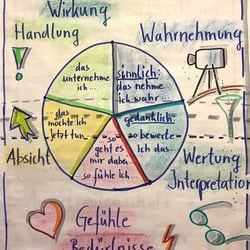 Wirkung
Handlung
Wahrnehmung
das
unternehme
ich...
sinnlich:
das nehme
ich wahr...
...das
möchte ich
jetzt tun...
gedanklich:
so bewerte
ich das...
...so
geht es
mir dabei,
so fühle ich...
Absicht
Wertung
Interpretation
Gefühle
Bedürfnisse